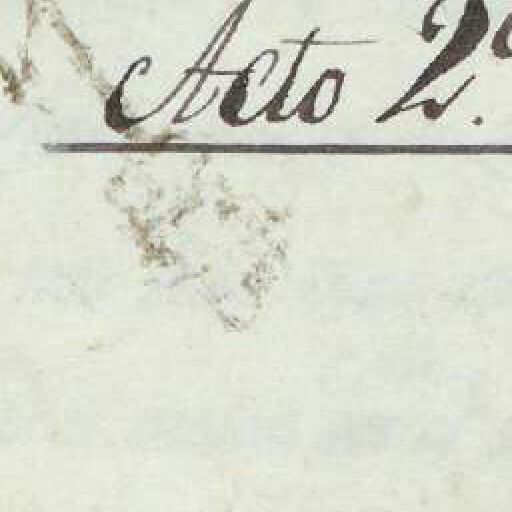 Acto 2º.